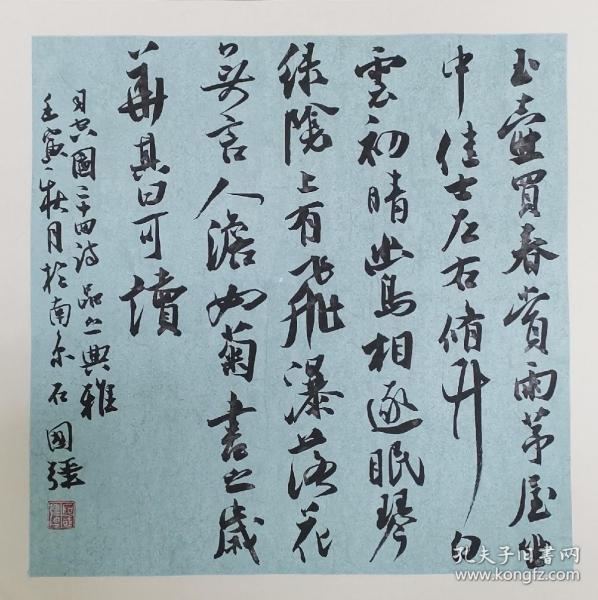 玉壺買春賞雨茅屋坐
中佳士左右脩竹白
雲初晴幽鳥相逐眠琴
綠陰上有飛瀑落花
無言人澹如菊書之歲
華其曰可讀
司空圖二十四詩品之典雅
壬寅秋月於南京石國強
孔夫子旧书网
www.kongfz.com